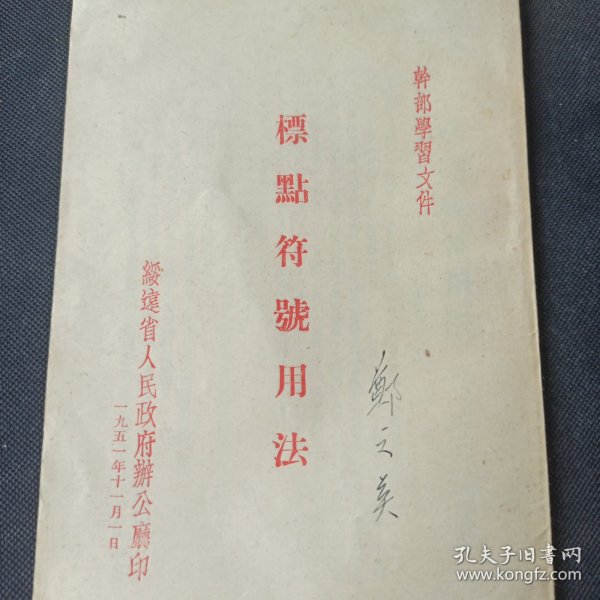 幹部學習文件
標點符號用法
鄭文英
綏遠省人民政府辦公廳印
一九五一年十一月一日
孔夫子旧书网
www.kongfz.com